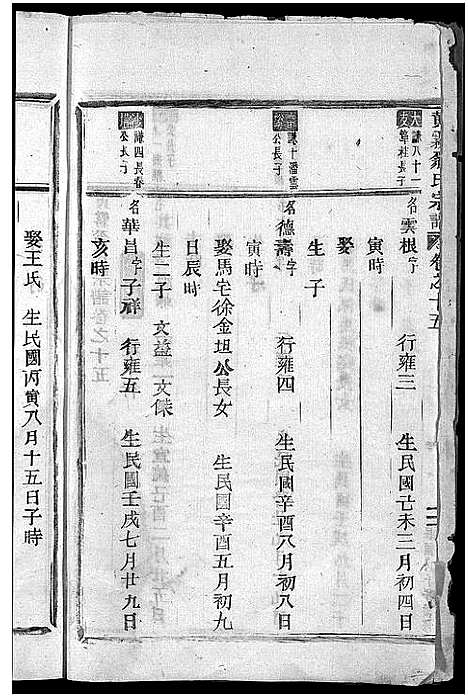 氏宗譜 卷之十五
大謙八十一
友篁柱長子
名雲根字 行雍三 生民國己未三月初四日
寅時
娶
生 子
謙十潘雲
公長子
名德壽字 行雍四 生民國辛酉八月初八日
寅時
娶馬宅徐金坦公長女 生民國辛酉五月初九
日辰時
生二子 文益 文傑
謙四長春
公次子
名華昌字子祥 行雍五 生民國壬戌七月廿九日
亥時
娶王氏 生民國丙寅八月十五日子時